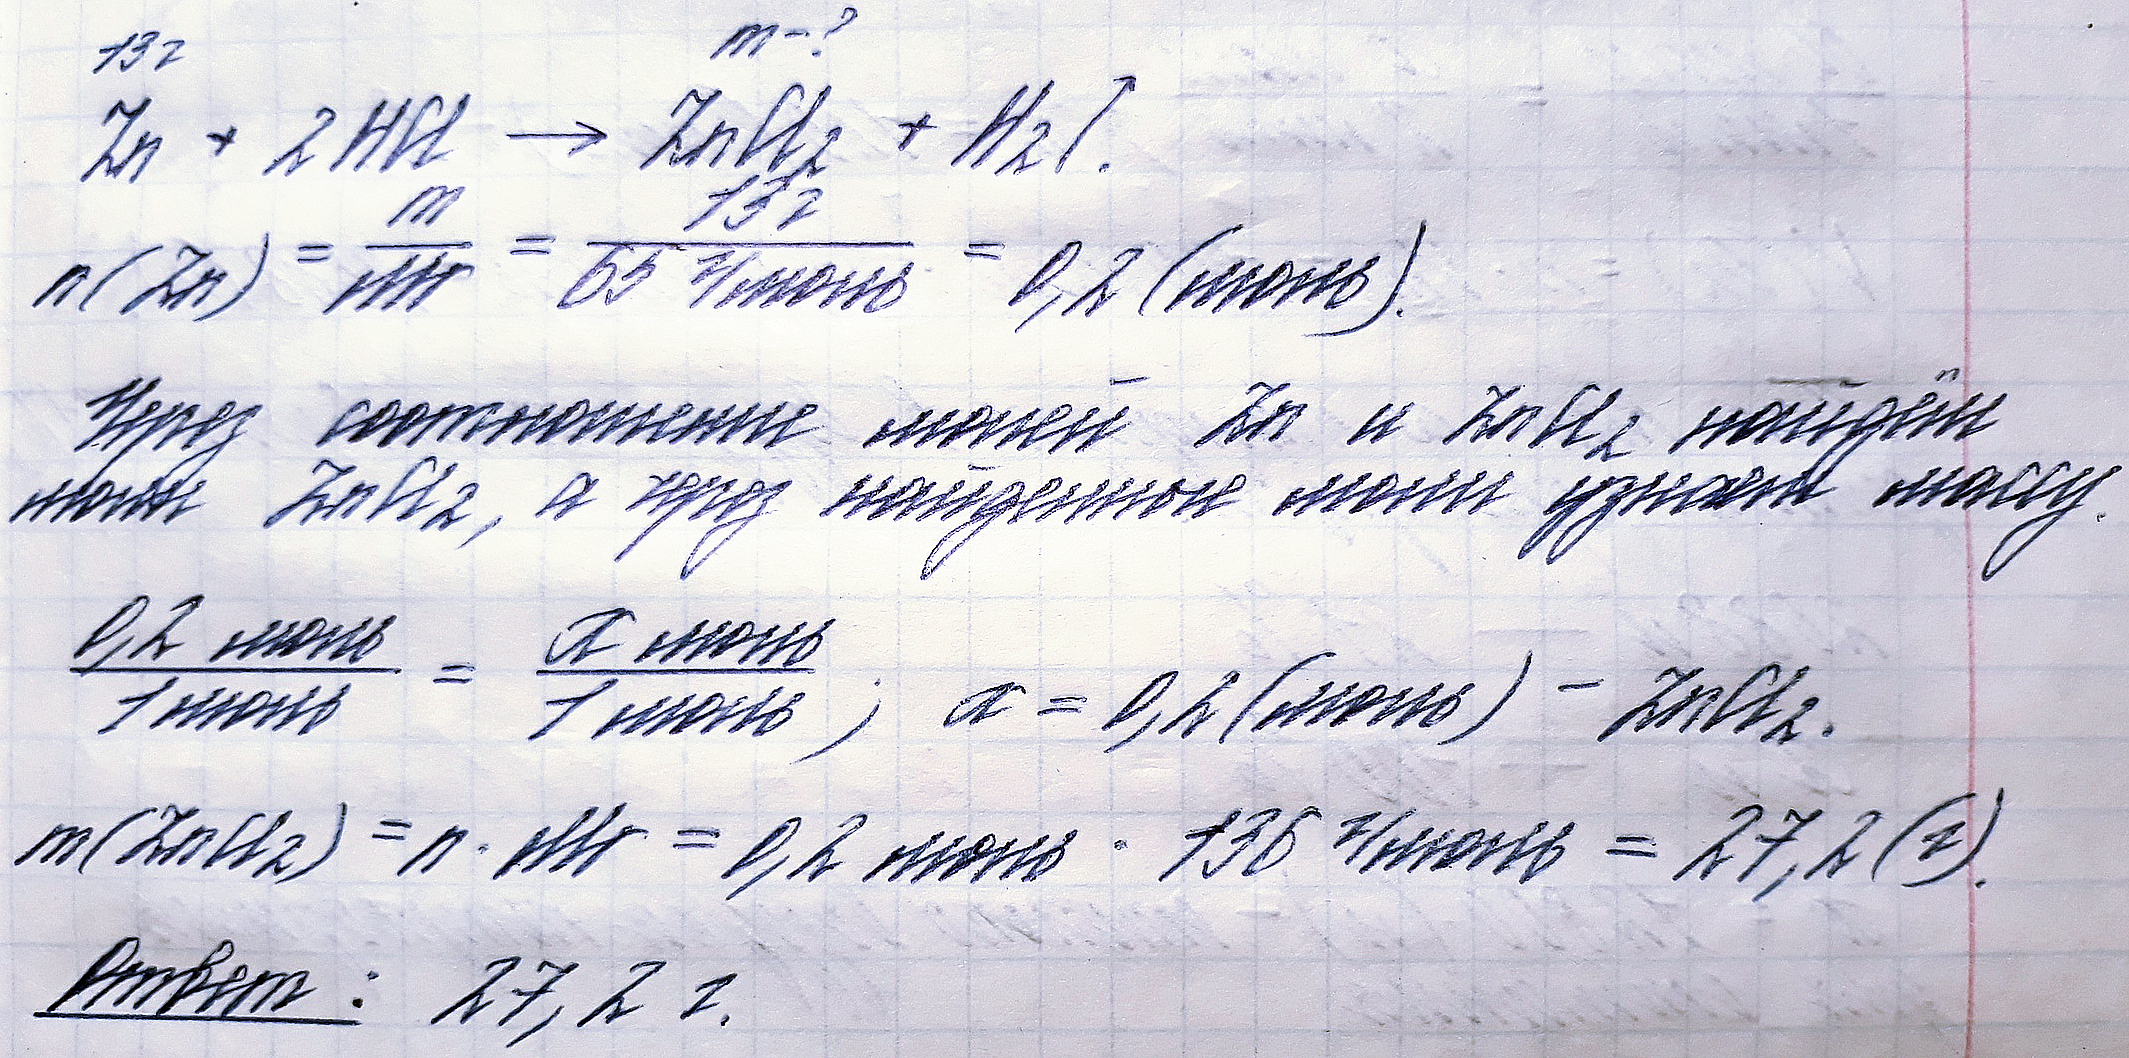 13г m-?
Zn + 2HCl → ZnCl₂ + H₂↑.
n(Zn) = m/Mr = 13г/65 г/моль = 0,2 (моль).
Через соотношение молей Zn и ZnCl₂ найдём
моли ZnCl₂, а через найденные моли узнаем массу.
0,2 моль/1 моль = x моль/1 моль ; x = 0,2 (моль) - ZnCl₂.
m(ZnCl₂) = n · Mr = 0,2 моль · 136 г/моль = 27,2 (г).
Ответ: 27,2 г.